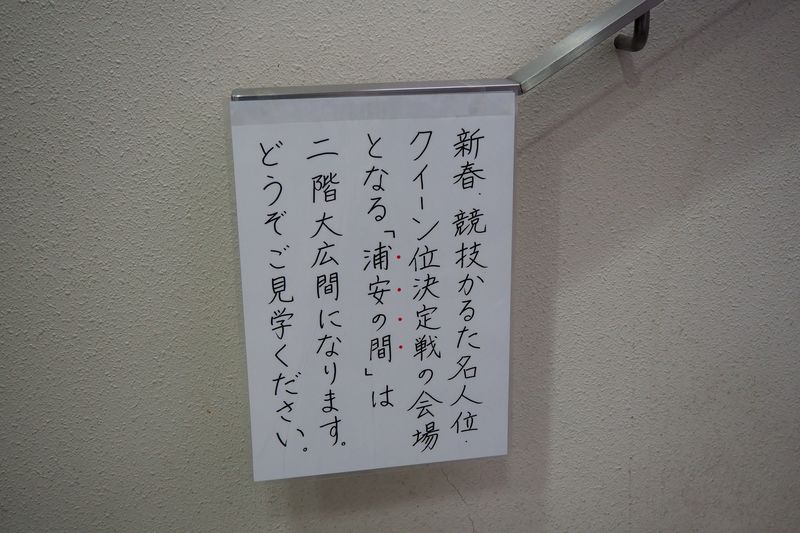 新春、競技かるた名人位・
クイーン位決定戦の会場
となる「浦安の間」は
二階大広間になります。
どうぞご見学ください。